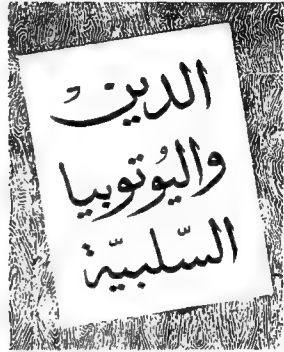 الدين
واليُوتوبيا
السّلبيّة